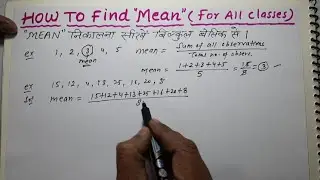 HOW To Find "Mean" (For All Classes)
"MEAN" निकालना सीखें बिल्कुल बेसिक से।
ex 1, 2, ③, 4, 5 mean = Sum of all observations / Total no. of observ.
mean
mean = 1+2+3+4+5 / 5 = 15/5 = ③
ex 15, 12, 4, 13, 25, 16, 20, 8
Sol mean = 15+12+4+13+25+16+20+8 / 8